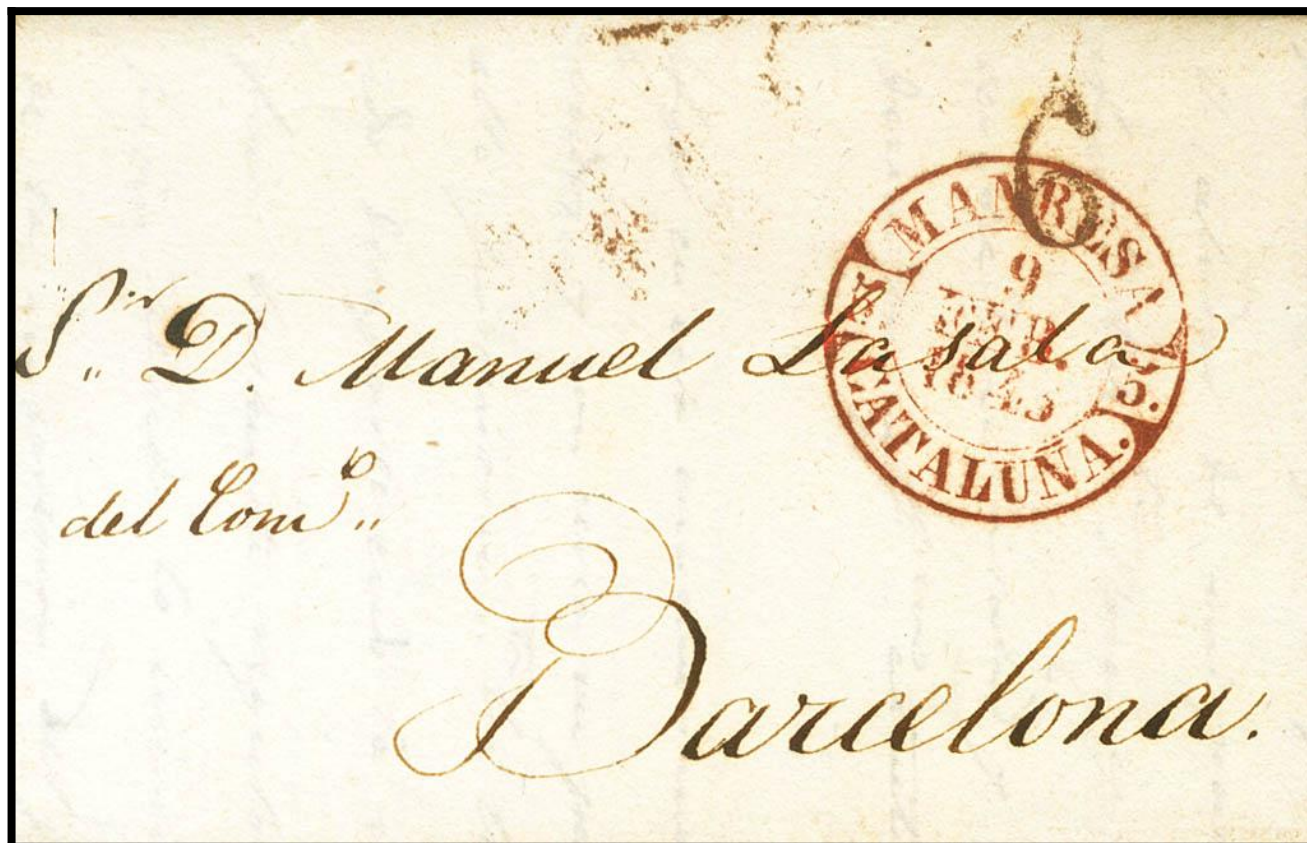 6
MANRESA
9
1845
15.
CATALUÑA.
Sr. D. Manuel Lasala
del Comº
Barcelona.